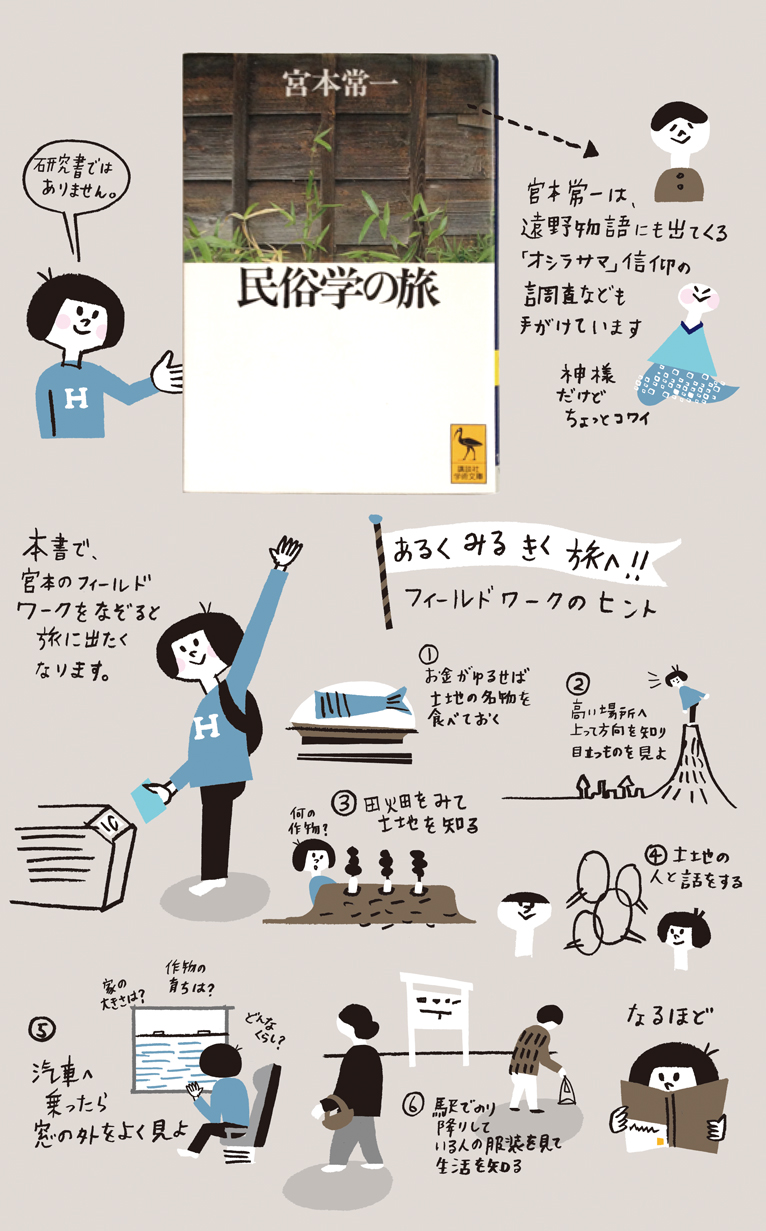 宮本常一
研究書では
ありません。
民俗学の旅
講談社
学術文庫
H
宮本常一は、
遠野物語にも出てくる
「オシラサマ」信仰の
調査なども
手がけています
神様
だけど
ちょっとコワイ
本書で、
宮本のフィールド
ワークをなぞると
旅に出たく
なります。
あるくみるきく旅へ!!
フィールドワークのヒント
①
お金がゆるせば
土地の名物を
食べておく
②
高い場所へ
上って方向を知り
目立つものを見よ
H
IC
③田畑をみて
土地を知る
何の
作物?
④土地の
人と話をする
⑤
汽車へ
乗ったら
窓の外をよく見よ
家の
大きさは?
作物の
育ちは?
どんな
くらし?
⑥駅での
降りして
いる人の服装を見て
生活を知る
なるほど